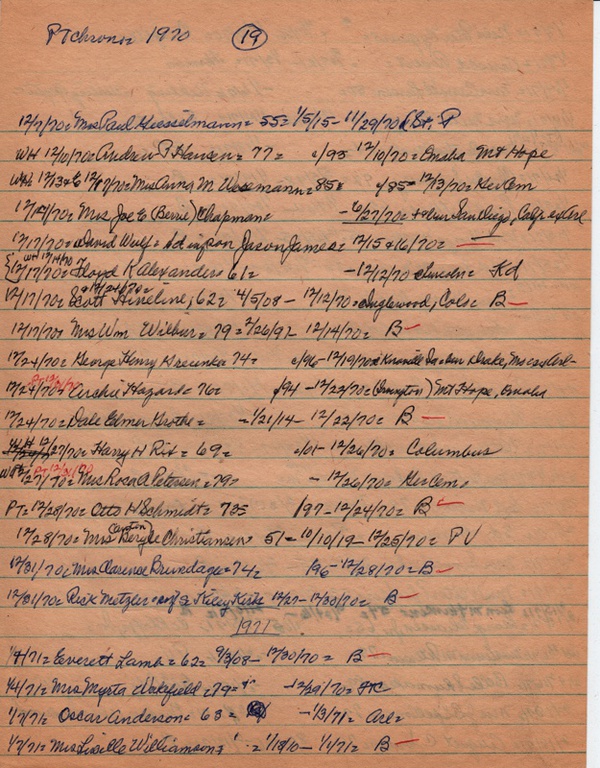 PT chronos 1970 (19)
12/7/70= Mrs Paul Giesselmann= 55= 1/5/15- 11/29/70 (St. P
WH 12/10/70= Andrew P Hansen= 77= c/93 12/10/70= Omaha Mt Hope
12/13 & 12/17/70= Mrs Anna M. Wesemann= 85= c/85= 12/13/70= GerCem
12/14/70= Mrs Joe E (Berrie) Chapman= -6/27/70= San Diego, Calif
12/17/70= David Wulf= Jason James= 12/15 & 16/70= —
WH 12/14/70
12/17/70= Floyd K Alexander= 61= -12/12/70 Lincoln= Kd
& 12/24/70=
12/17/70= Scott Hineline, 62= 4/5/08- 12/12/70= Inglewood, Colo= B—
12/17/70= Mrs Wm Wilbur= 79= 2/26/91- 12/14/70= B—
12/24/70= George Henry 74= c/96- 12/19/70=
PT 12/21/70
12/24/70= Archie Hazard= 76= c/94 -12/22/70= (Irvington) Mt Hope, Omaha
12/24/70= Dale Elmer Grothe= -1/21/14- 12/22/70= B—
WH 12/27/70= Harry H Rix= 69= c/01- 12/26/70= Columbus
PT 12/31/70
12/27/70= Mrs Rosa A Petersen= 79= - 12/26/70= GerCem=
PT= 12/28/70= Otto H Schmidt= 73 1/97- 12/24/70= B—
12/28/70= Mrs (Clinton) Beryle Christiansen= 51= 10/10/19- 12/25/70= PV
12/31/70= Mrs Clarence 74= 1/96- 12/28/70= B—
12/31/70= Rick Metzler= Kiley Kirk 12/27- 12/30/70= B—
1971
1/4/71= Everett Lamb= 62= 9/3/08- 12/30/70= B—
1/4/71= Mrs Myrta Wakefield= 79= -12/29/70=
1/7/71= Oscar Anderson= 68= -1/3/71= Arl=
1/7/71= Mrs Lucille Williamson= = 1/18/10- 1/4/71= B—